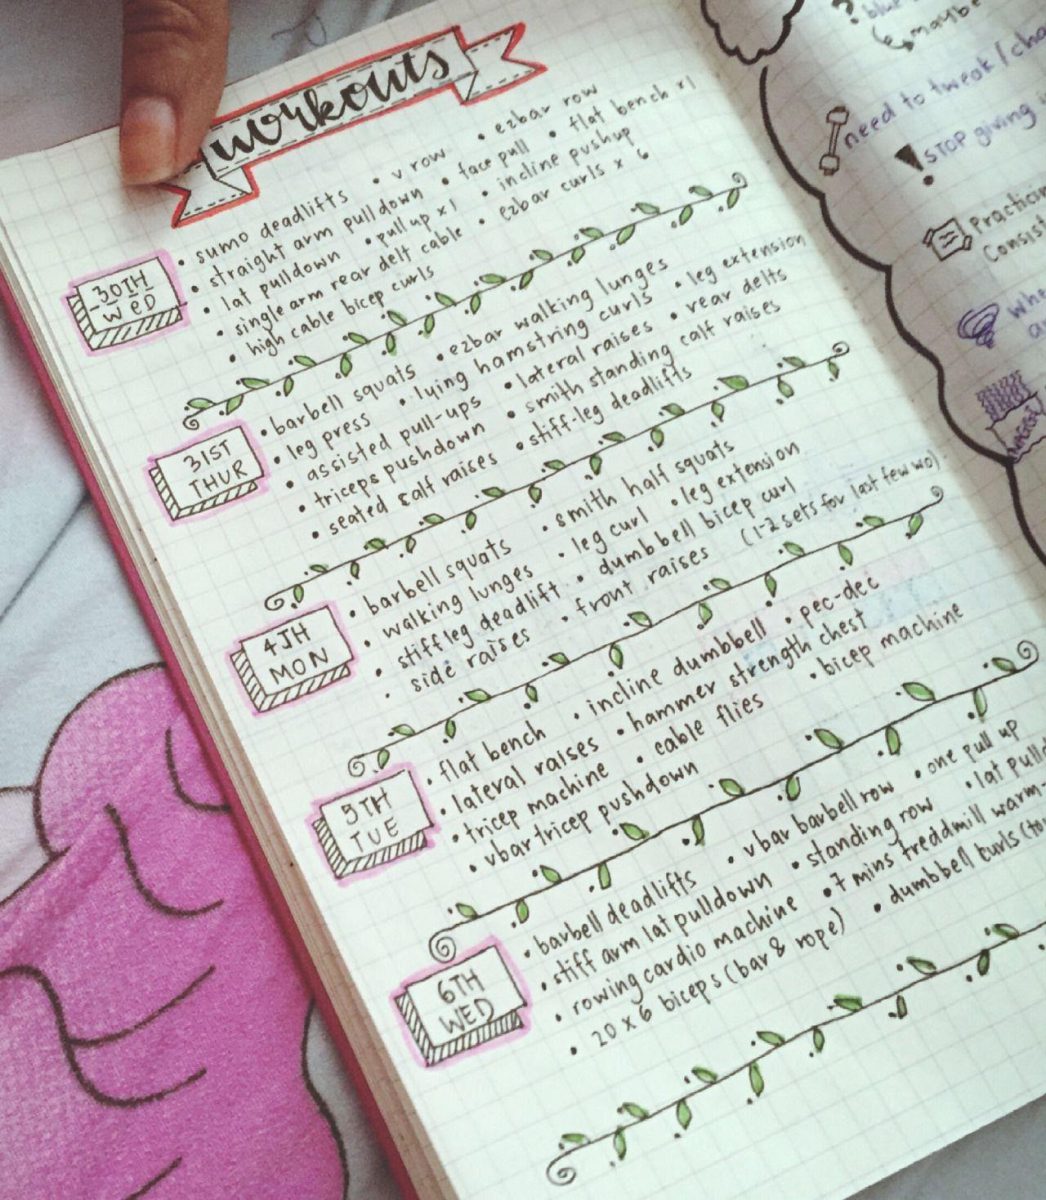 workouts
30TH
WED
• sumo deadlifts • v row • ezbar row
• straight arm pulldown • face pull • flat bench x1
• lat pulldown • pullup x1 • incline pushup
• single arm rear delt cable • ezbar curls x 6
• high cable bicep curls
31ST
THUR
• barbell squats • ezbar walking lunges
• leg press • lying hamstring curls • leg extension
• assisted pull-ups • lateral raises • rear delts
• triceps pushdown • smith standing calf raises
• seated calf raises • stiff-leg deadlifts
4TH
MON
• barbell squats • smith half squats
• walking lunges • leg curl • leg extension
• stiff leg deadlift • dumbbell bicep curl
• side raises • front raises (1-2 sets for last few wo)
5TH
TUE
• flat bench • incline dumbbell • pec-dec
• lateral raises • hammer strength chest
• tricep machine • cable flies • bicep machine
• vbar tricep pushdown
6TH
WED
• barbell deadlifts • vbar barbell row • one pull up
• stiff arm lat pulldown • standing row • lat pulld
• rowing cardio machine • 7 mins treddmill warm-
• 20 x 6 biceps (bar & rope) • dumbbell curls (to
maybe
need to tweak / cha
STOP giving i
Practicin
Consist
whe